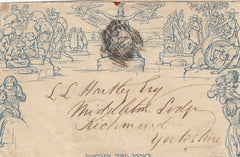 L L Hartley Esq
Middleton Lodge
Richmond
Yorkshire